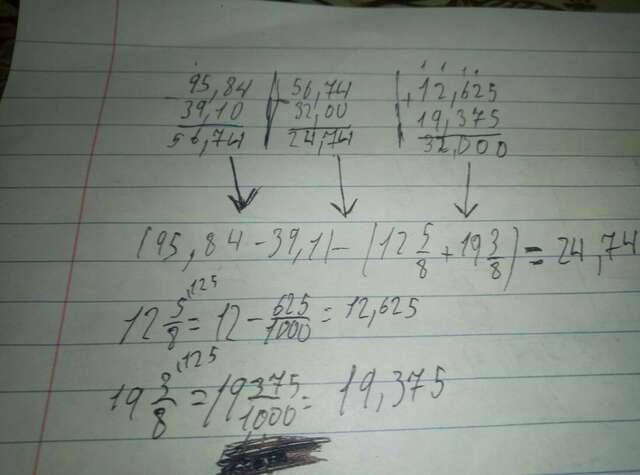 - 95,84 | - 56,74 | + 12,625
39,10 | 32,00 | 19,375
56,74 | 24,74 | 32,000
(95,84 - 39,1) - (12 5/8 + 19 3/8) = 24,74
12 5/8 ,125 = 12 - 625/1000 = 12,625
19 3/8 ,125 = 19 375/1000 = 19,375